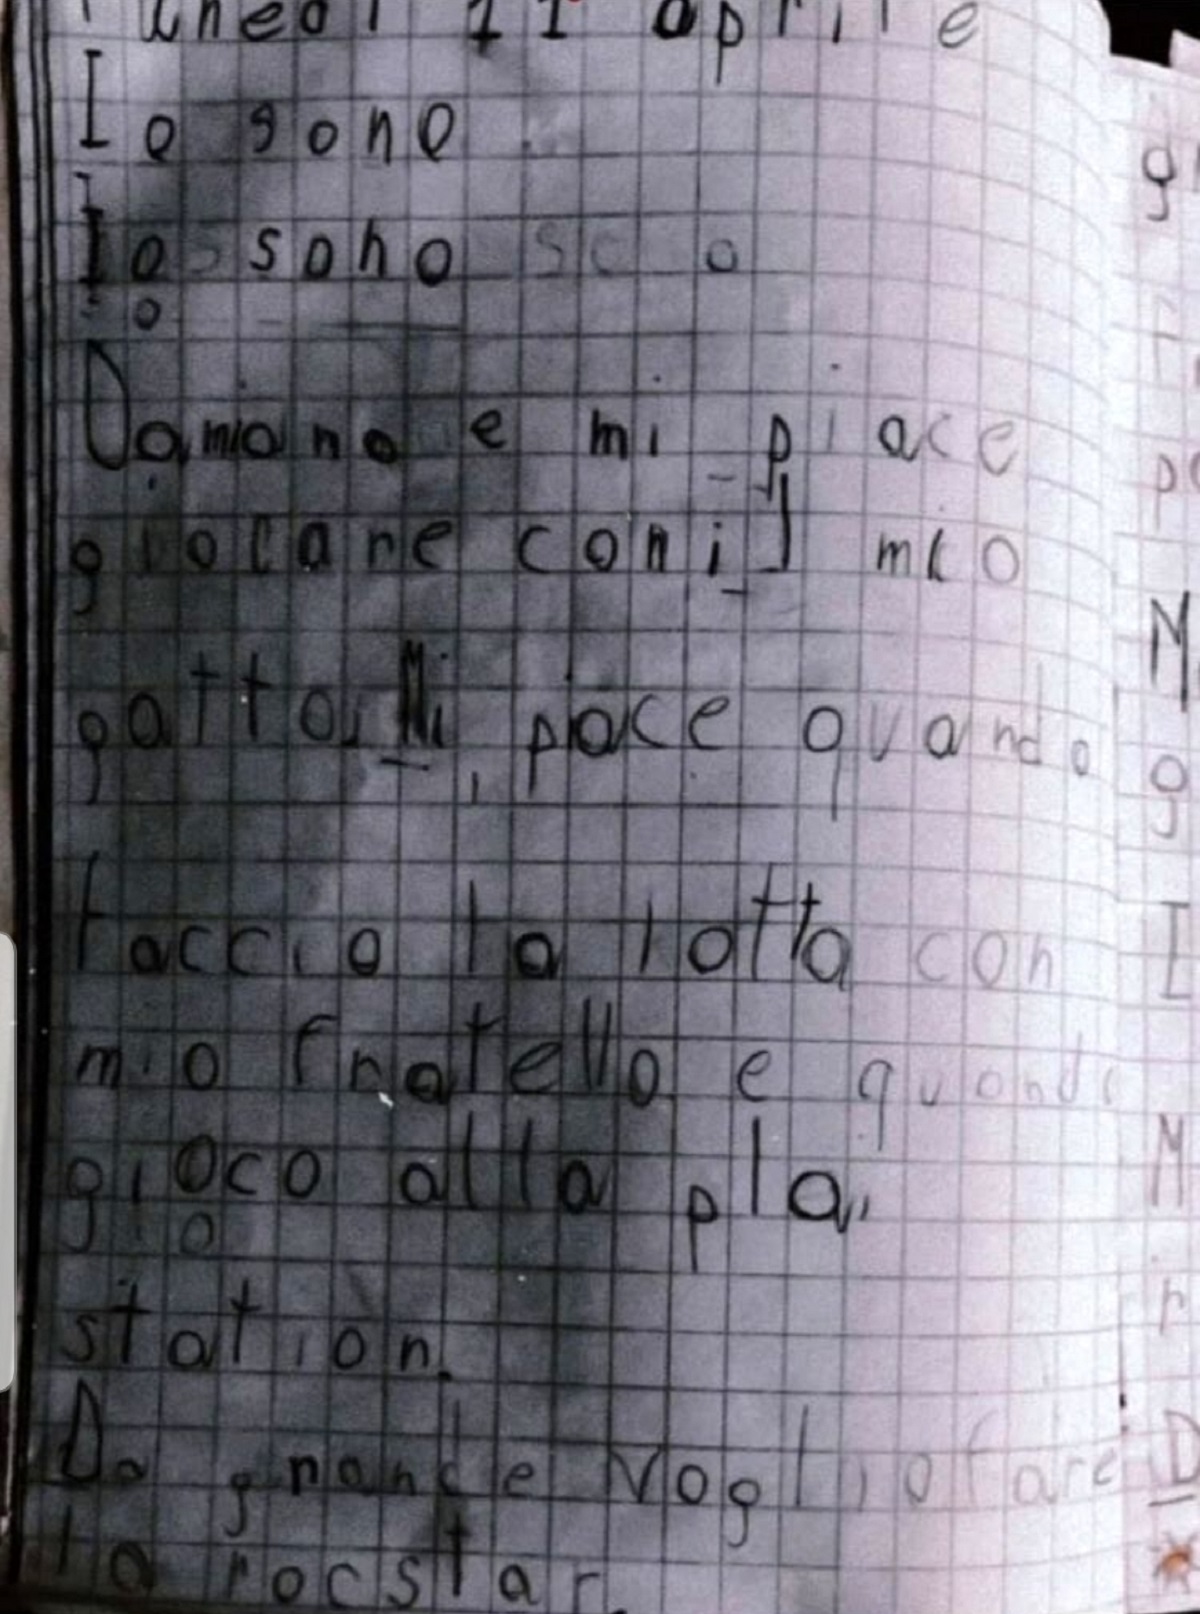 lunedì 11 aprile
Io sono
Io sono
Io
Damiano e mi piace
giocare con il mio
gatto. Mi piace quando
faccio la lotta con
mio fratello e quando
gioco alla pla
station.
Da grande voglio fare
la rocstar.